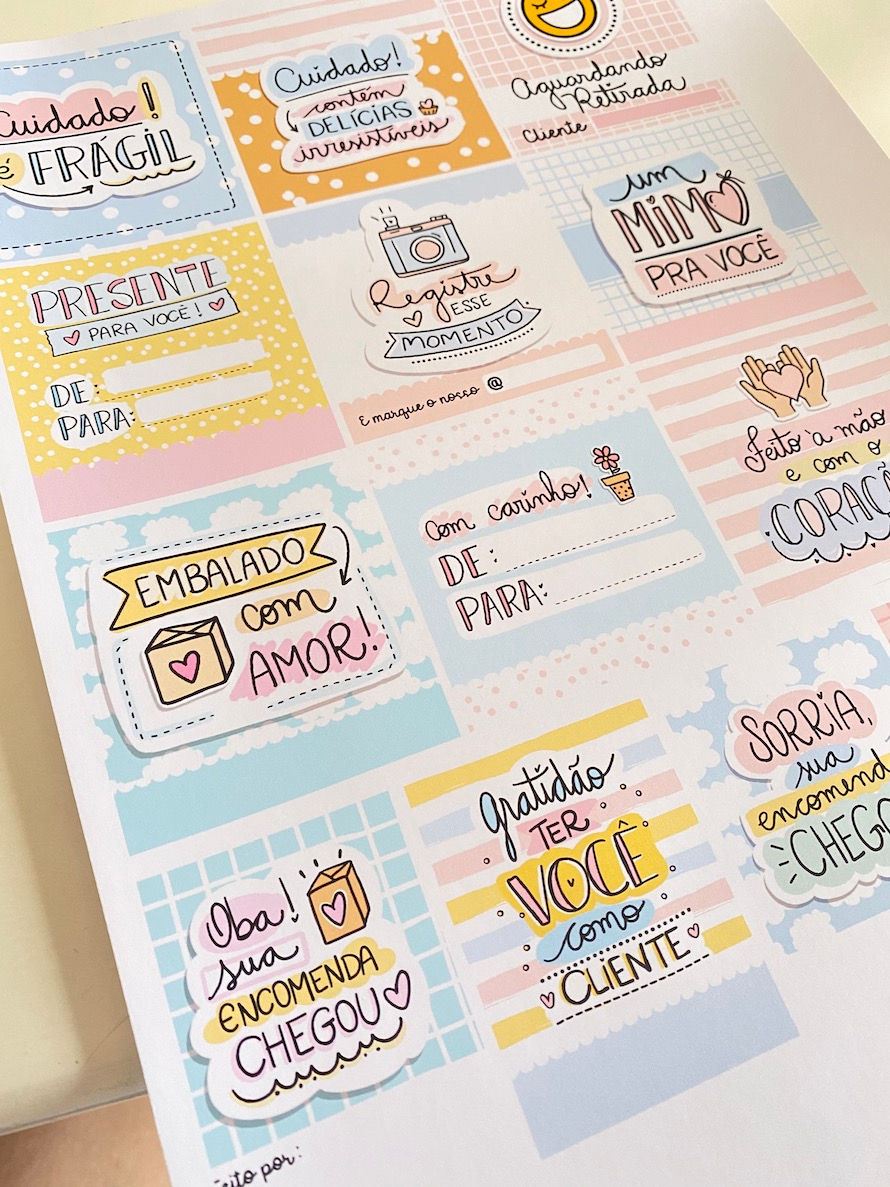 Cuidado!
é FRÁGIL
Cuidado!
contém
DELÍCIAS
irresistíveis
Aguardando
Retirada
Cliente
PRESENTE
PARA VOCÊ!
DE:
PARA:
Registre
ESSE
MOMENTO
E marque o nosso @
um
MIMO
PRA VOCÊ
EMBALADO
com
AMOR!
com carinho!
DE:
PARA:
Feito à mão
e com o
CORAÇÃ
Oba!
sua
ENCOMENDA
CHEGOU
gratidão
TER
VOCÊ
como
CLIENTE
SORRIA,
sua
encomend
CHEGO
eito por: